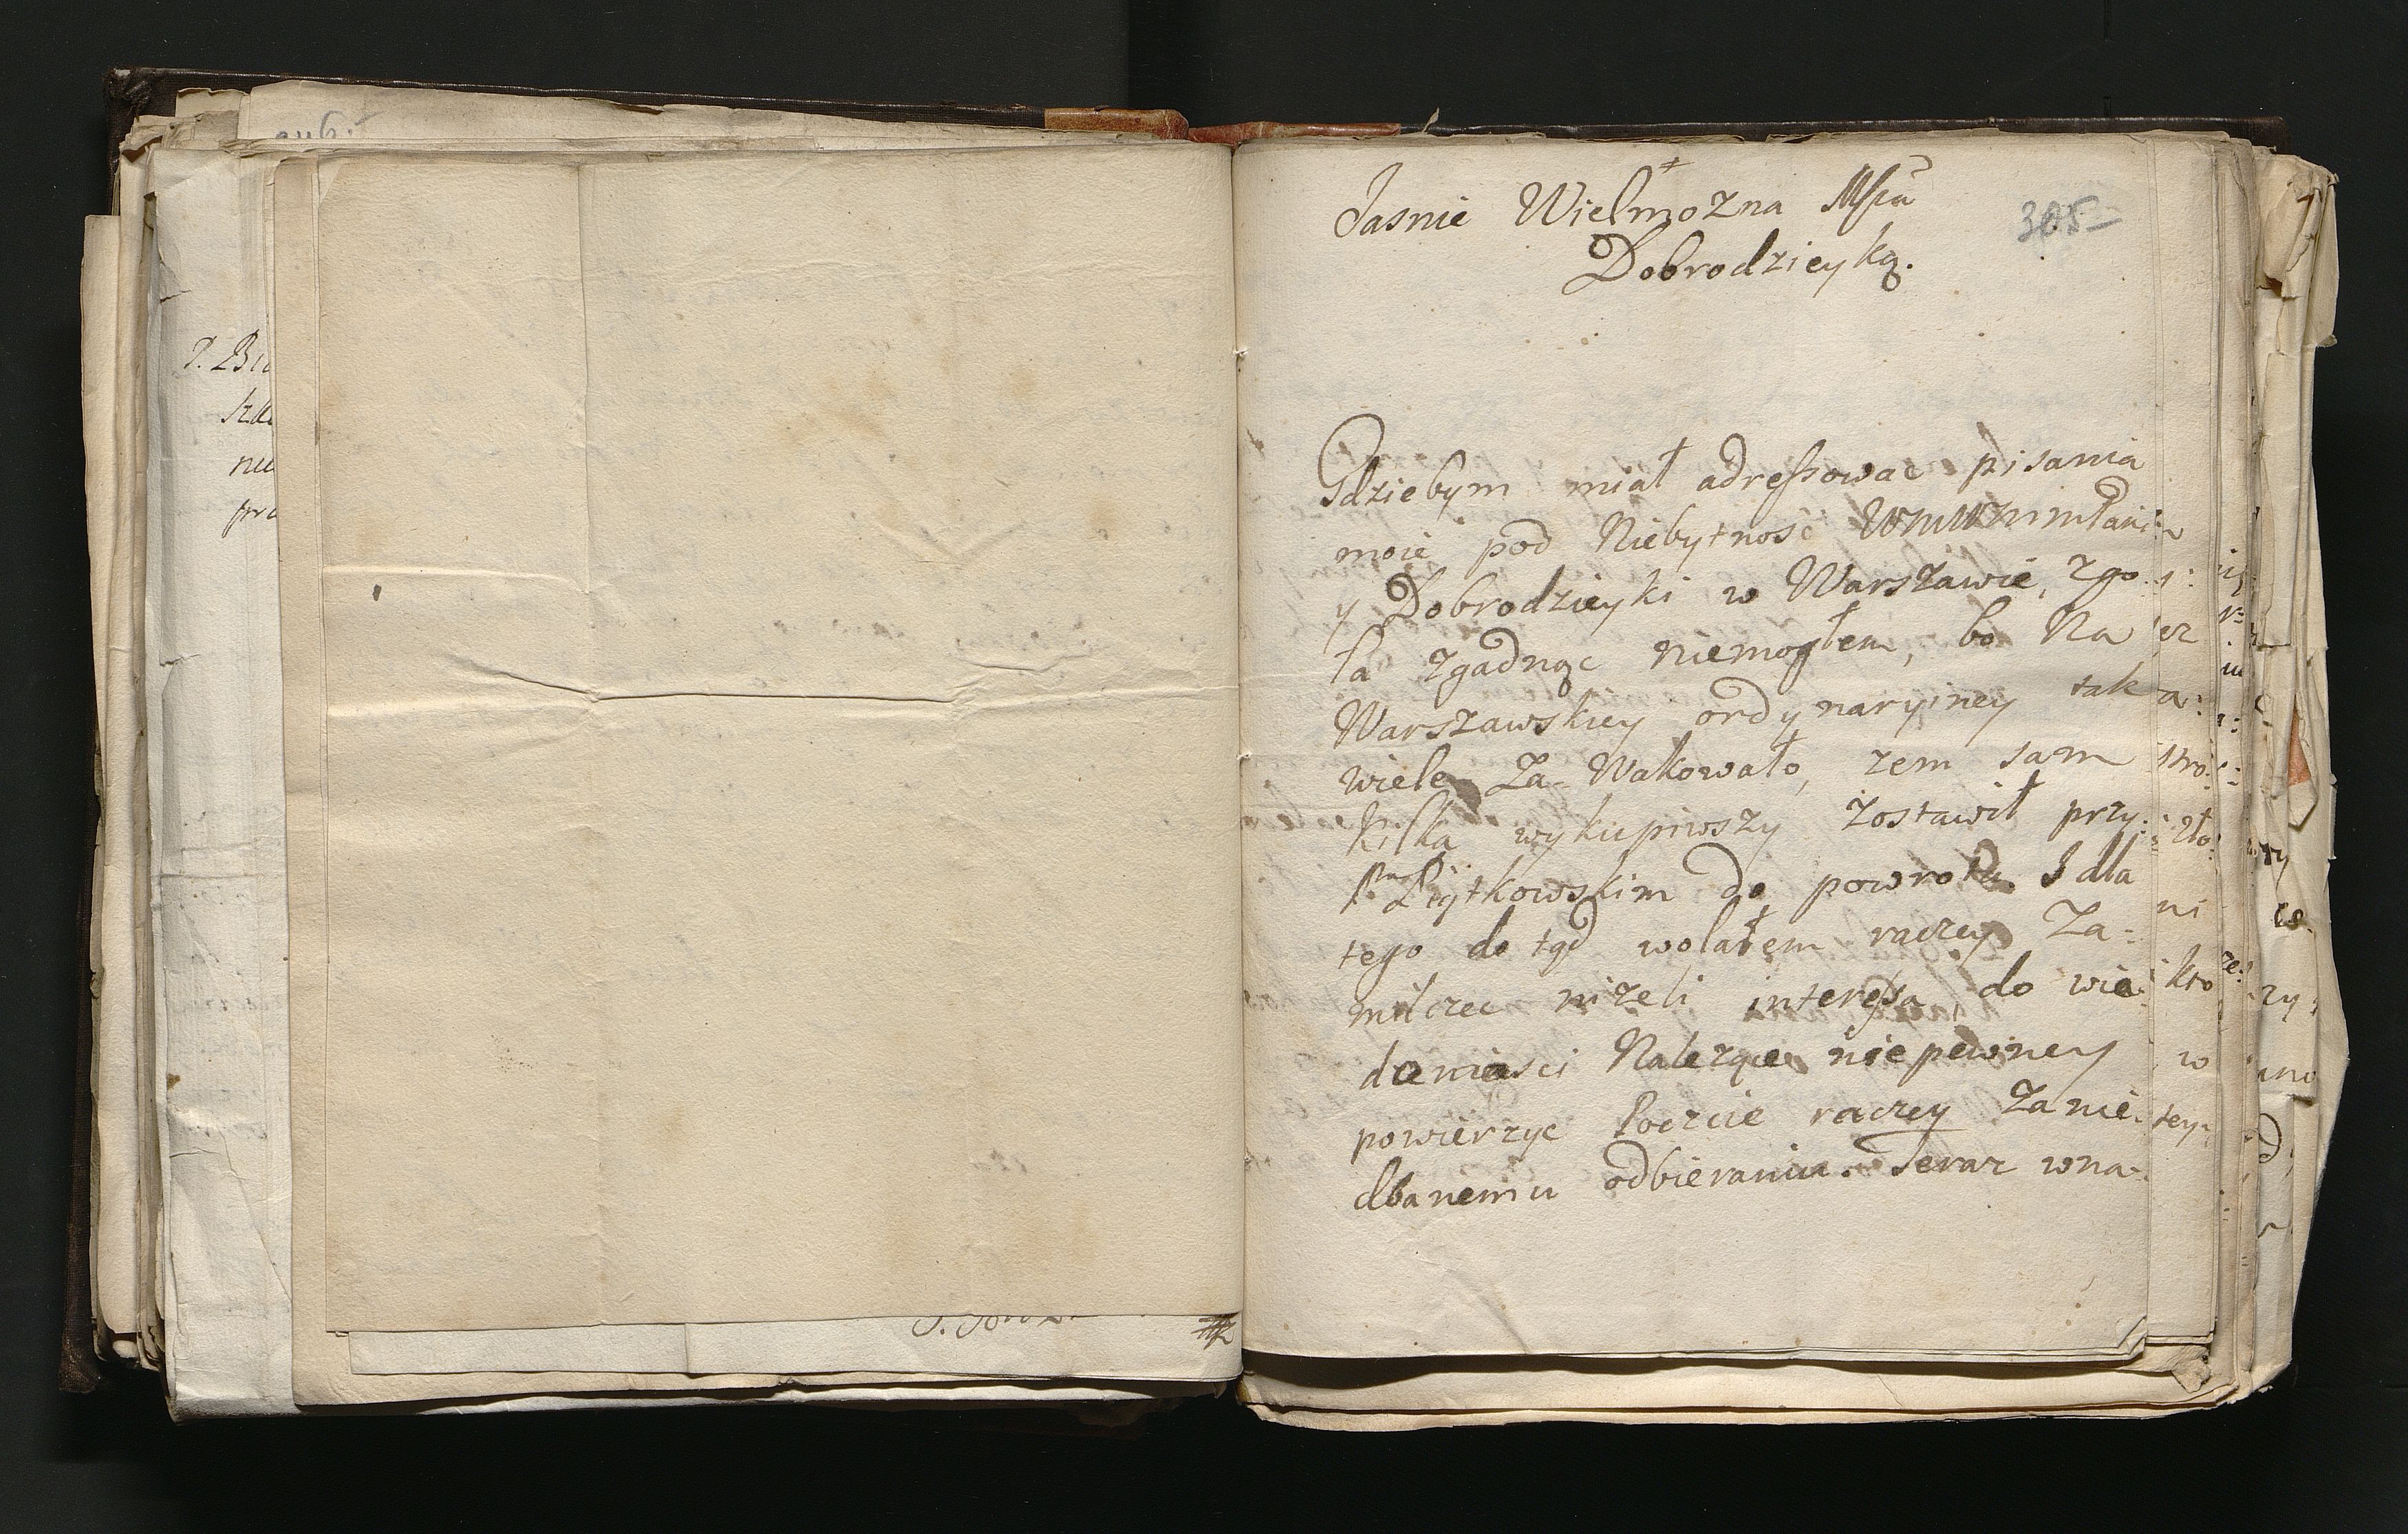 Jasnie Wielmozna Mścia
305
Dobrodzieyką.
Gdziebym miał adressowac pisania
moie pod Niebytność
y Dobrodzieyki w Warszawie, zgo
ła zgadnąc niemogłem, bo Na
Warszawskiey ordynaryiney tak
wiele Za-Wakowało, zem sam
Kilka wykupiwszy zostawił przy
Pytkowskim do powrotu. I dla
tego do tąd wolałem raczey Za-
milczec nizeli interessa do wia
domości Nalezące niepewney
powierzyc Poczcie raczey Zanie-
dbanemu odbieraniu. Teraz wna-